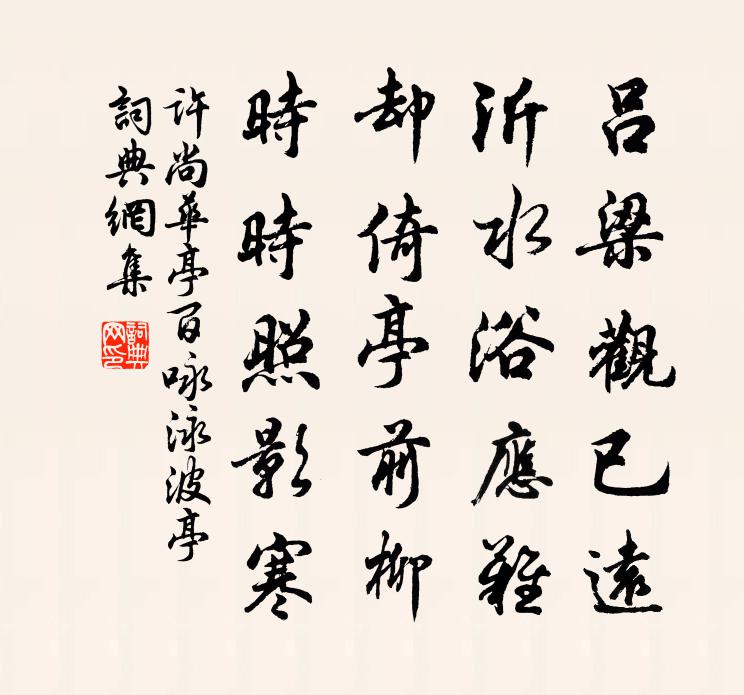 呂梁觀已遠
沂水浴應難
却倚亭前柳
時時照影寒
許尚華亭百咏泳波亭
詞典網集
詞典網印